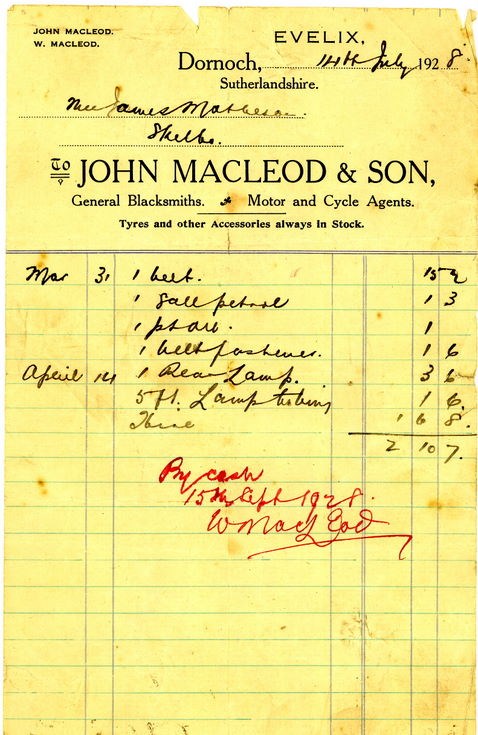 JOHN MACLEOD.
W. MACLEOD.
EVELIX,
Dornoch, 14th July 1928.
Sutherlandshire.
Mr James Matheson.
Skelbo.
To JOHN MACLEOD & SON,
General Blacksmiths. Motor and Cycle Agents.
Tyres and other Accessories always in Stock.
Mar 31 1 belt. 15 2
1 gall petrol 1 3
1 1
1 belt fastener. 1 6
April 14 1 Rear Lamp. 3 6
5 ft. Lamp tubing 1 6.
1 6 8.
2 10 7.
By cash
15th Sept 1928.
W MacLeod